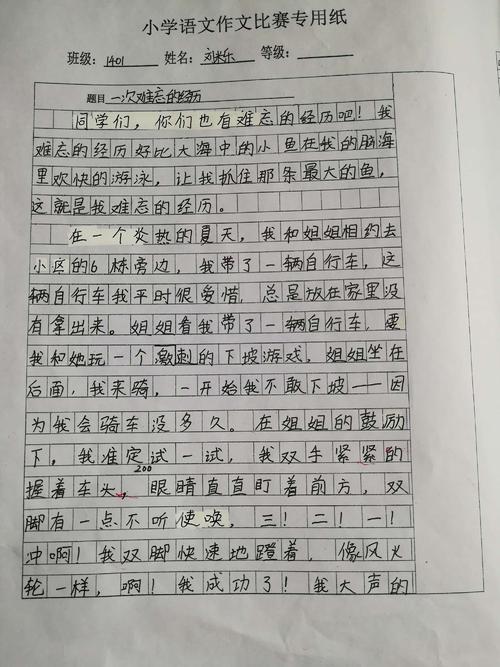 小学语文作文比赛专用纸
班级：1401 姓名：刘米乐 等级：
题目 一次难忘的经历
同学们，你们也有难忘的经历吧！我
难忘的经历好比大海中的小鱼在我的脑海
里欢快的游泳，让我抓住那条最大的鱼，
这就是我难忘的经历。
在一个炎热的夏天，我和姐姐相约去
小区的6栋旁边，我带了一辆自行车，这
辆自行车我平时很爱惜，总是放在家里没
有拿出来。姐姐看我带了一辆自行车，要
我和她玩一个激刺的下坡游戏，姐姐坐在
后面，我来骑，一开始我不敢下坡——因
为我会骑车没多久。在姐姐的鼓励
下，我准定试一试，我双手紧紧的
200
握着车头，眼睛直直盯着前方，双
脚有一点不听使唤，三！二！一！
冲啊！我双脚快速地蹬着，像风火
轮一样，啊！我成功了！我大声的